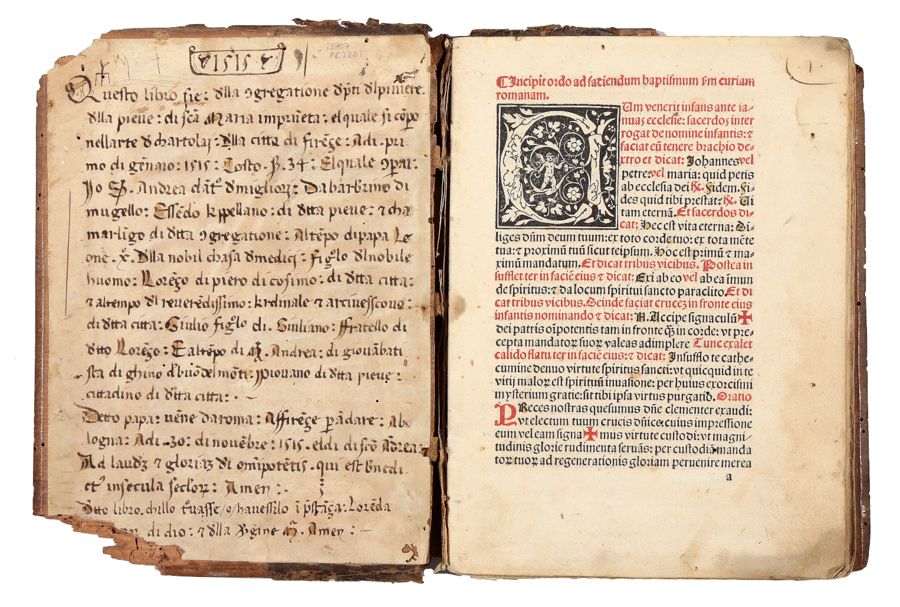 ·1515·
22707
Questo libro sie: dlla 9gregatione dpti dlpiviere
dlla pieve: di scã Maria imprũeta: el quale si cõpo
nellarte d chartolaj: Dlla citta di firẽze: Adi · pri
mo di gẽnaio: 1515: Costo · 34: El quale 9par
Jo Andrea dãt dmiglior: Da barbrino di
mugello: Essẽdo kppellano: di dtta pieve: & cha
marlĩgo di dtta 9gregatione: Altẽpo di papa Le
one · x: Dlla nobil chasa dmedici: figlo dlnobile
huomo: Lorẽzo di piero di cosimo: di dtta citta:
& altempo dl reverẽdissimo: krdinale & arcivesscovo:
di dtta citta: Giulio figlo di Giuliano: ffratello di
dtto Lorẽzo: E altẽpo di Andrea: di giovãbati
sta di ghino piovano di dtta pieve:
cittadino di dtta citta:
Detto papa: vẽne da roma: Affirẽze p ãdare: Abo
logna: Adi · 30: di novẽbre: 1515: el di di scõ Adrea:
Ad laudz & gloriaz di omipotẽtis · qui est bnedi
ct' insecula seclor: Amen:
Dtto libro · chi llo Lorẽda
di dio: & dlla Vgine Amen:
¶Incipit ordo ad faciendum baptismum fm curiam
romanam.
CUm venerit infans ante ia-
nuas ecclesie: sacerdos inter
rogat de nomine infantis: &
faciat eũ tenere brachio de-
xtro et dicat: Johannes vel
petre: vel maria: quid petis
ab ecclesia dei ℟. Fidem. Fi-
des quid tibi prestat: ℟. Ui
tam eternã. Et sacerdos di-
cat: Hec est vita eterna: Di-
liges dñm deum tuum: ex toto corde tuo: ex tota mẽte
tua: & proximũ tuũ sicut teipsum. Hoc est primũ & ma-
ximũ mandatum. Et dicat tribus vicibus. Postea in
sufflet ter in faciẽ eius & dicat: Eri ab eo vel ab ea imun
de spiritus: & da locum spiritui sancto paraclito. Et di
cat tribus vicibus. Deinde faciat crucez in fronte eius
infantis nominando & dicat: N. Accipe signaculũ ✠
dei patris oĩpotentis tam in fronte q̃ in corde: vt pre-
cepta mandatorum suorum valeas adimplere Tunc exalet
calido flatu ter in faciẽ eius: & dicat: Insufflo te cathe-
cumine denuo virtute spiritus sancti: vt quicquid in te
vitij malorum est spirituũ inuasione: per huius exorcismi
mysterium gratie: sit tibi ipsa virtus purgatiõ. Oratio
PReces nostras quesumus dñe clementer exaudi:
vt electum tuum crucis dñice cuius impressione
eum vel eam signa ✠ mus virtute custodi: vt magni-
tudinis glorie rudimenta seruãs: per custodiã manda
torum tuorum ad regenerationis gloriam peruenire merea
a